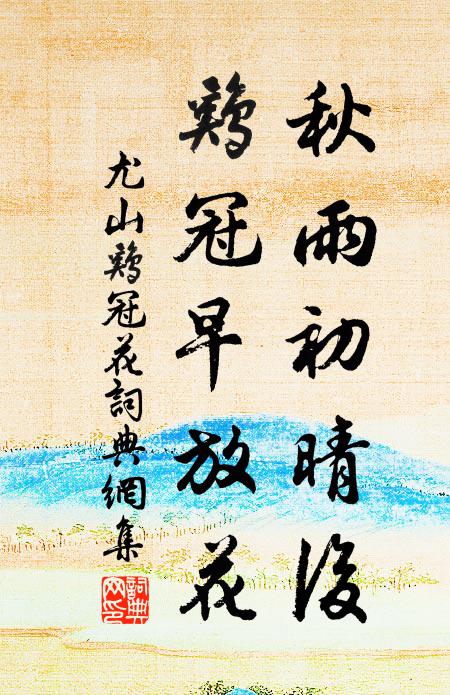 秋雨初晴後
鷄冠早放花
尤山鷄冠花詞典網集
詞典网印